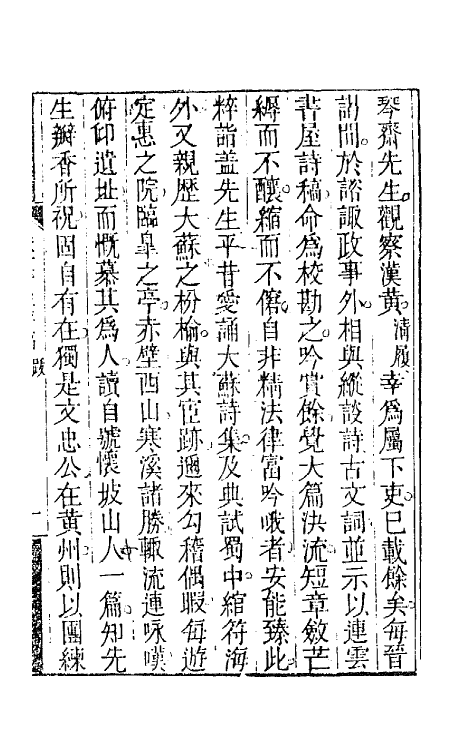 琴齋先生觀察漢黃清履幸為屬下吏已載餘矣每晉
謁間於諮諏政事外相與縱談詩古文詞並示以連雲
書屋詩稿命為校勘之吟賞餘覺大篇決流短章斂芒
縟而不釀縮而不僒自非精法律富吟哦者安能臻此
粹詣盖先生平昔愛誦大蘇詩集及典試蜀中綰符海
外又親歷大蘇之枌榆與其宦跡邇來勾稽偶暇每遊
定惠之院臨臯之亭赤壁西山寒溪諸勝輒流連咏嘆
俯仰遺址而慨慕其為人讀自號懷坡山人一篇知先
生瓣香所祝固自有在獨是文忠公在黃州則以團練
跋
一